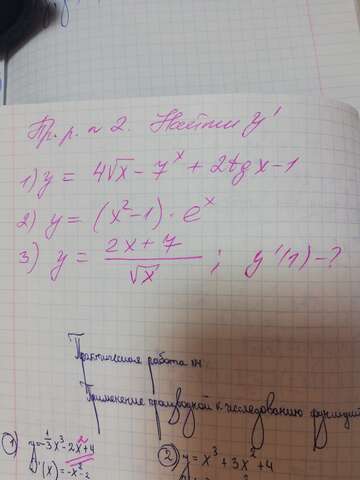 Пр. р. № 2. Найти y'
1) y = 4√x - 7^x + 2tg x - 1
2) y = (x² - 1) · e^x
3) y = (2x + 7)/√x ; y'(1) - ?
Практическая работа №
Применение производной к исследованию функций
2) y = x³ + 3x² + 4